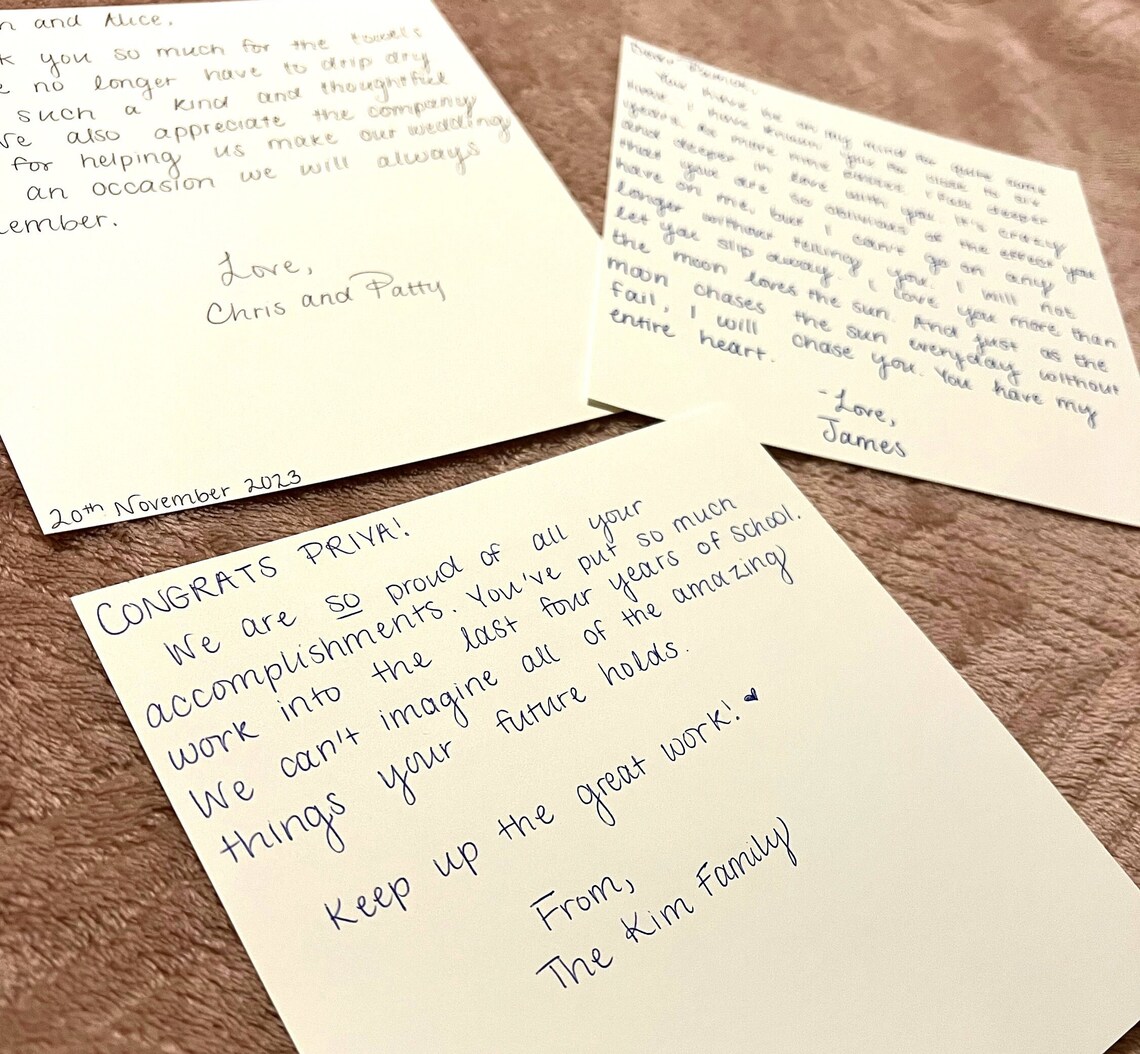 and Alice,
you so much for the towels
no longer have to drip dry
such a kind and thoughtful
also appreciate the company
for helping us make our wedding
an occasion we will always
ember.
Love,
Chris and Patty
20th November 2023
Your have been on my mind for quite some
time. I have known you for close to six
years. As more time passes I fall deeper
and deeper in love with you. It's crazy
that you are so oblivious of the effect you
have on me, but I can't go on any
longer without telling you. I will not
let you slip away. I love you more than
the moon loves the sun. And just as the
moon chases the sun everyday without
fail, I will chase you. You have my
entire heart.
-Love,
James
CONGRATS PRIYA!
We are so proud of all your
accomplishments. You've put so much
work into the last four years of school.
We can't imagine all of the amazing
things your future holds.
Keep up the great work!
From,
The Kim Family